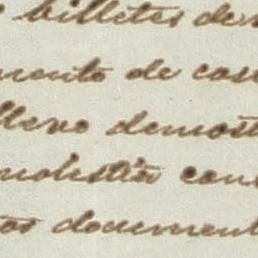 billetes de
mento de cas
llevo demost
molestia con
tos document